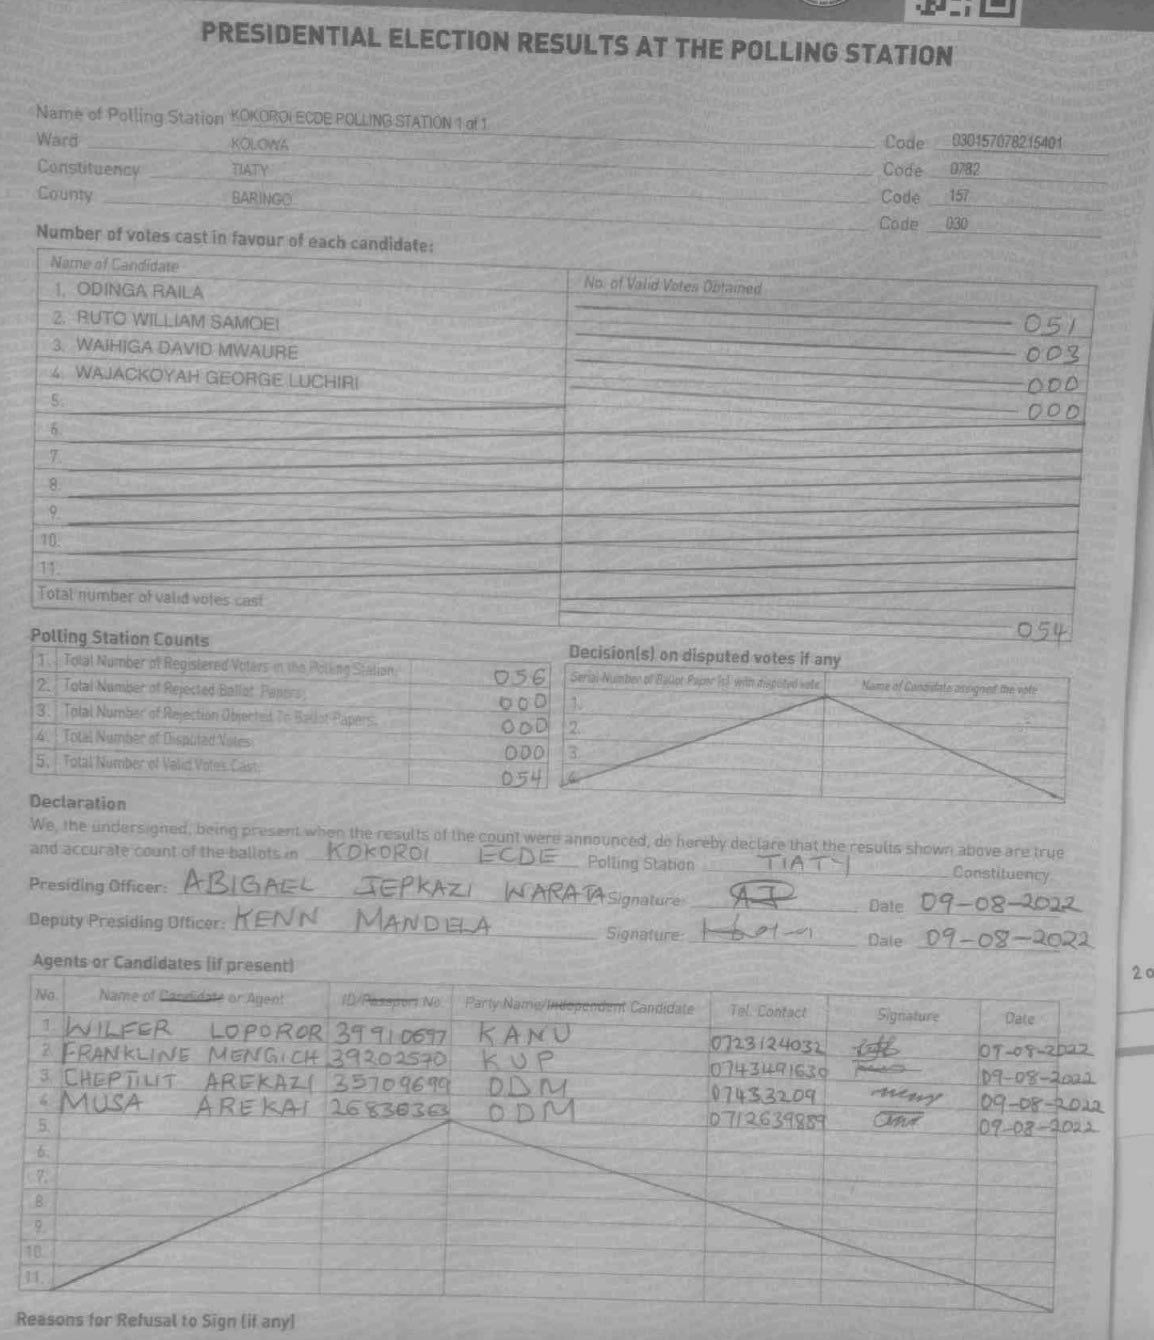 PRESIDENTIAL ELECTION RESULTS AT THE POLLING STATION
Name of Polling Station KOKOROI ECDE POLLING STATION 1 of 1 Code 030157078215401
Ward KOLOWA Code 0782
Constituency TIATY Code 157
County BARINGO Code 030
Number of votes cast in favour of each candidate:
Name of Candidate No. of Valid Votes Obtained
1. ODINGA RAILA 051
2. RUTO WILLIAM SAMOEI 003
3. WAIHIGA DAVID MWAURE 000
4. WAJACKOYAH GEORGE LUCHIRI 000
5.
6.
7.
8.
9.
10.
11.
Total number of valid votes cast 054
Polling Station Counts
1. Total Number of Registered Voters in the Polling Station; 056
2. Total Number of Rejected Ballot Papers; 000
3. Total Number of Rejection Objected To Ballot Papers; 000
4. Total Number of Disputed Votes; 000
5. Total Number of Valid Votes Cast; 054
Decision(s) on disputed votes if any
Serial Number of Ballot Paper (s) with disputed vote Name of Candidate assigned the vote
1.
2.
3.
4.
Declaration
We, the undersigned, being present when the results of the count were announced, do hereby declare that the results shown above are true
and accurate count of the ballots in KOKOROI ECDE Polling Station TIATY Constituency
Presiding Officer: ABIGAEL JEPKAZI WARATA Signature: AJ Date 09-08-2022
Deputy Presiding Officer: KENN MANDELA Signature: Date 09-08-2022
Agents or Candidates (if present)
No. Name of Candidate or Agent ID/Passport No. Party Name/Independent Candidate Tel. Contact Signature Date
1. WILFER LOPOROR 39910697 KANU 0723124032 09-08-2022
2. FRANKLINE MENGICH 39202570 KUP 0743491630 09-08-2022
3. CHEPTILIT AREKAZI 35709699 ODM 07433209 09-08-2022
4. MUSA AREKAI 26836363 ODM 0712639889 09-08-2022
5.
6.
7.
8.
9.
10.
11.
Reasons for Refusal to Sign (if any)